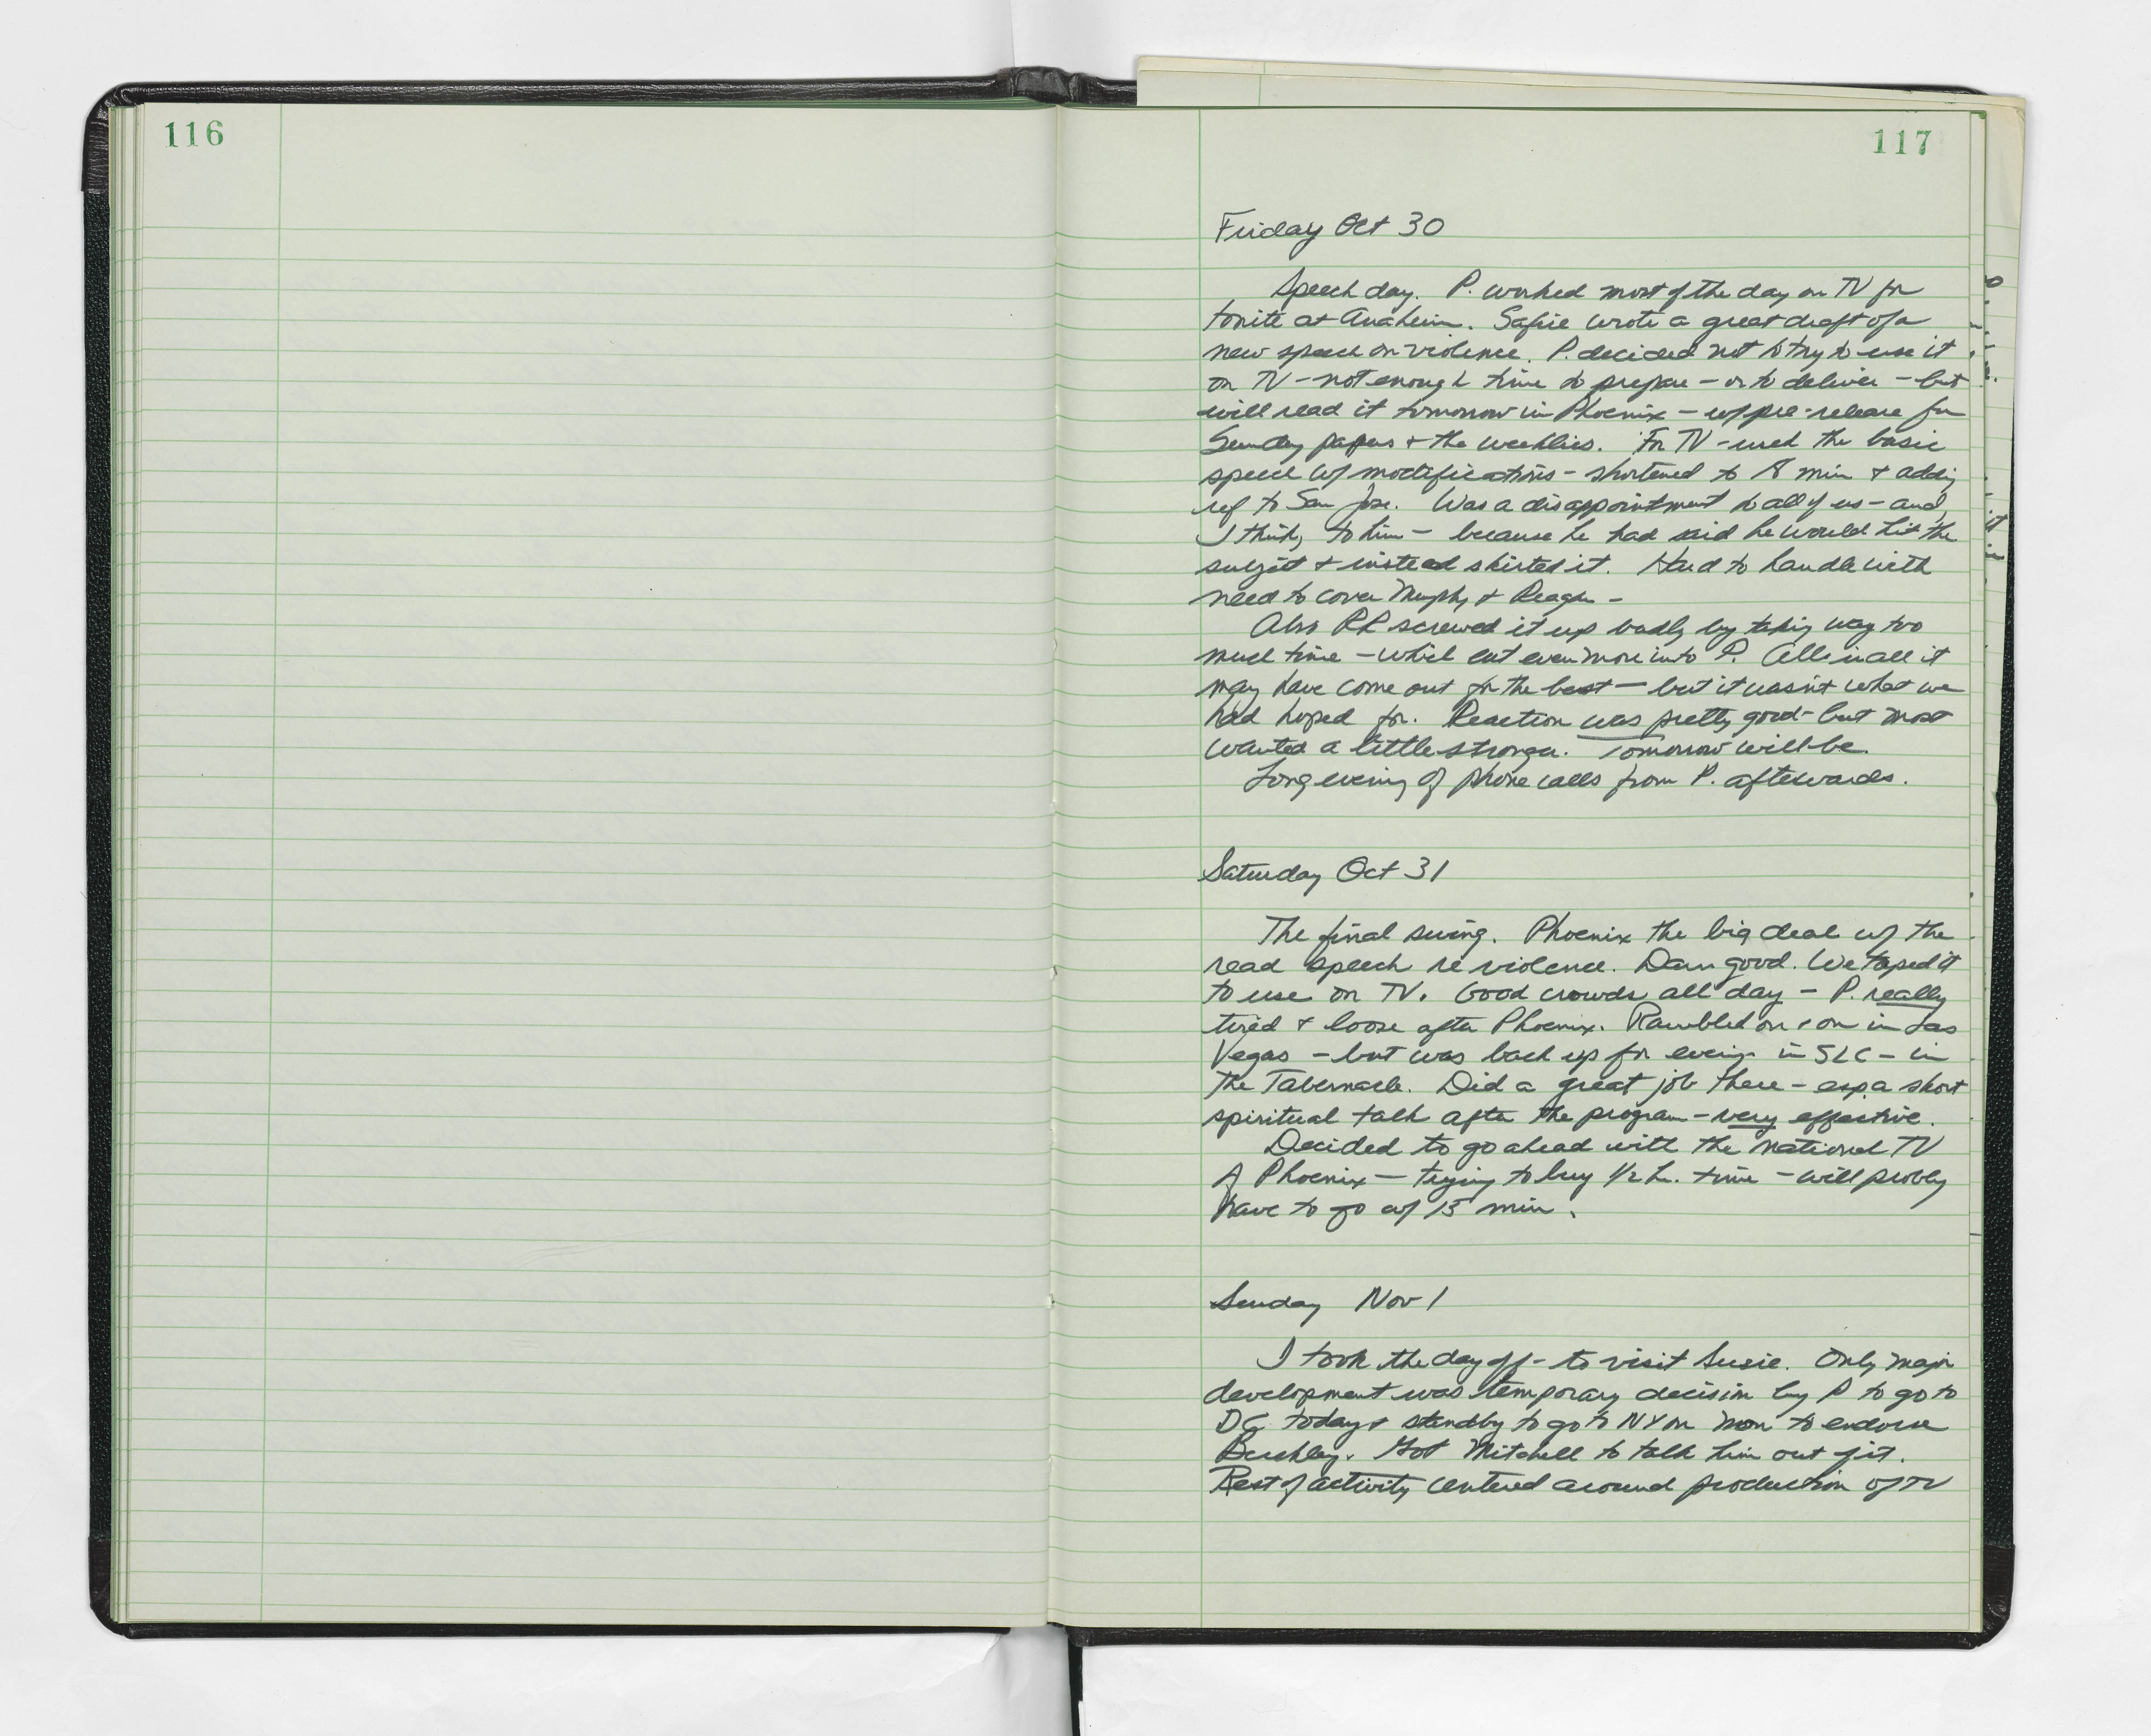 116
117
Friday Oct 30
Speech day. P. worked most of the day on TV for
tonite at Anaheim. Safire wrote a great draft of a
new speech on violence. P. decided not to try to use it
on TV - not enough time to prepare - or to deliver - but
will read it tomorrow in Phoenix - w/ pre-release for
Sunday papers + the weeklies. For TV - used the basic
speech w/ modifications - shortened to 18 min + adding
ref to San Jose. Was a disappointment to all of us - and,
I think, to him - because he had said he would hit the
subject + instead skirted it. Hard to handle with
need to cover Murphy + Reagan -
Also RR screwed it up badly by taking way too
much time - which cut even more into P. All in all it
may have come out for the best - but it wasn't what we
had hoped for. Reaction was pretty good - but most
wanted a little stronger. Tomorrow will be.
Long evening of phone calls from P. afterwards.
Saturday Oct 31
The final swing. Phoenix the big deal w/ the
read speech re violence. Damn good. We taped it
to use on TV. Good crowds all day - P. really
tired + loose after Phoenix. Rambled on + on in Las
Vegas - but was back up for evening in SLC - in
the Tabernacle. Did a great job there - esp. a short
spiritual talk after the program - very effective.
Decided to go ahead with the national TV
of Phoenix - trying to buy 1/2 hr. time - will probly
have to go w/ 15 min.
Sunday Nov 1
I took the day off - to visit Susie. Only major
development was temporary decision by P to go to
DC today + standby to go to NY on Mon to endorse
Buckley. Got Mitchell to talk him out of it.
Rest of activity centered around production of TV